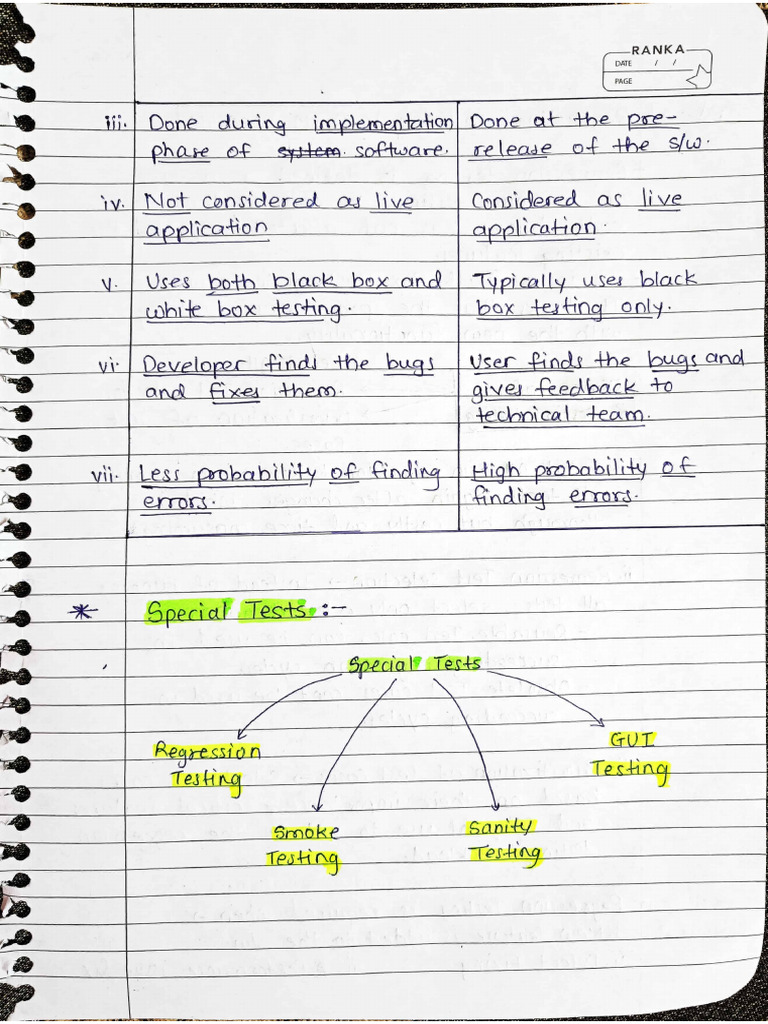 RANKA
DATE / /
PAGE
iii. Done during implementation
phase of system. software.
Done at the pre-
release of the s/w.
iv. Not considered as live
application
Considered as live
application.
v. Uses both black box and
white box testing.
Typically uses black
box testing only.
vi. Developer finds the bugs
and fixes them.
User finds the bugs and
gives feedback to
technical team.
vii. Less probability of finding
errors.
High probability of
finding errors.
* Special Tests :-
Special Tests
Regression
Testing
Smoke
Testing
Sanity
Testing
GUI
Testing